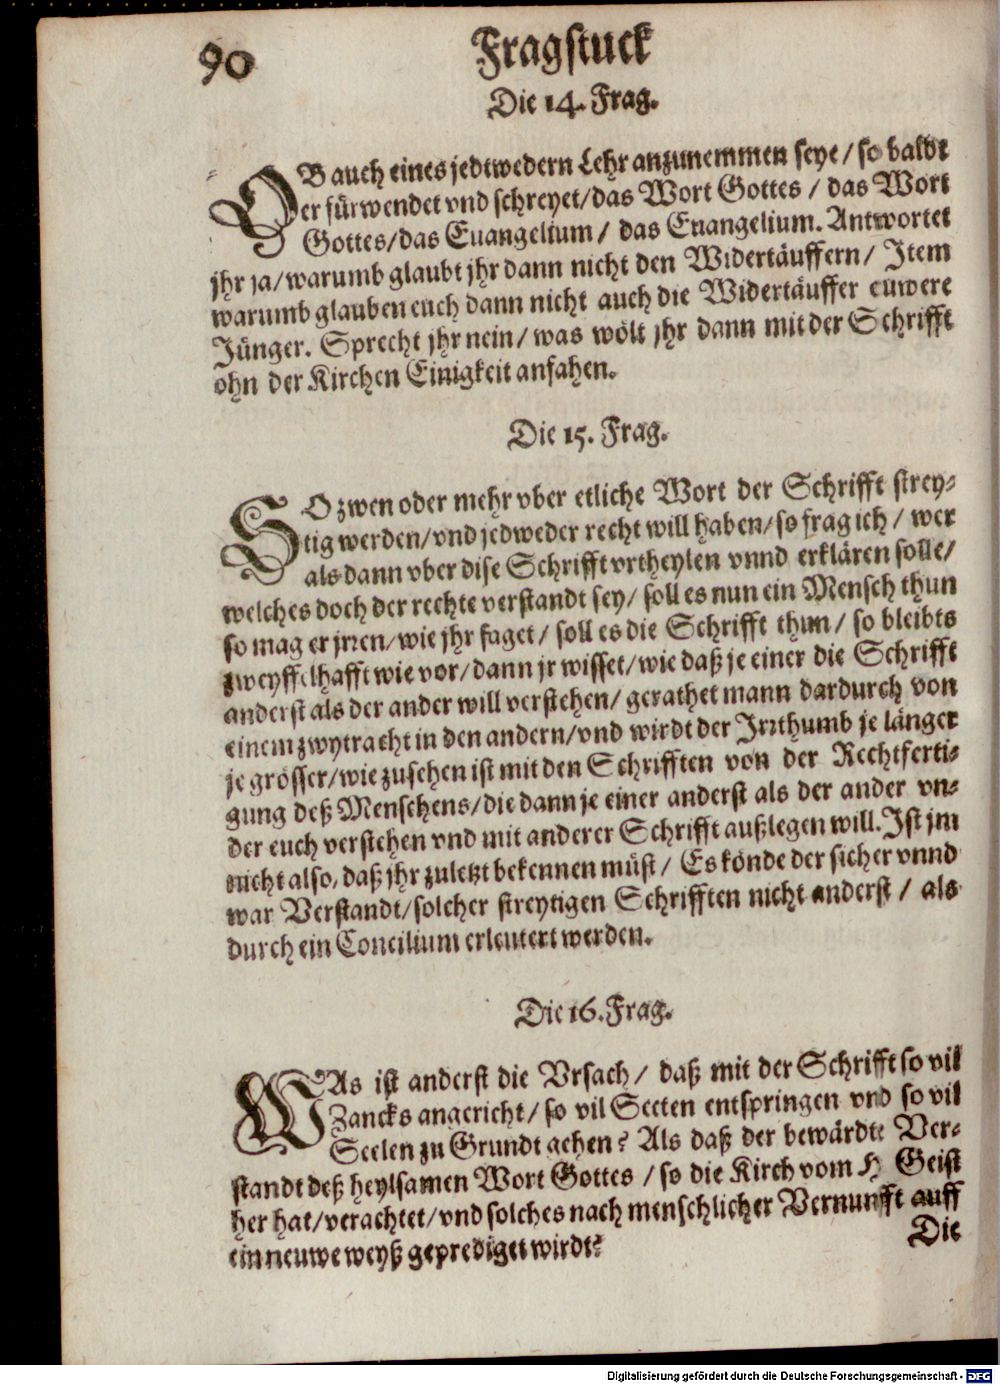 90
Fragstuck
Die 14. Frag.
OB auch eines jedtwedern Lehr anzunemmen seye / so baldt
er fürwendet vnd schreyet/das Wort Gottes / das Wort
Gottes/das Euangelium / das Euangelium. Antwortet
jhr ja/warumb glaubt jhr dann nicht den Widertäuffern/ Item
warumb glauben euch dann nicht auch die Widertäuffer euwere
Jünger. Sprecht jhr nein/ was wölt jhr dann mit der Schrifft
ohn der Kirchen Einigkeit anfahen.
Die 15. Frag.
SO zwen oder mehr vber etliche Wort der Schrifft strey-
tig werden/vnd jedweder recht will haben/so frag ich / wer
als dann vber dise Schrifft vrtheylen vnnd erklären solle/
welches doch der rechte verstandt sey/ soll es nun ein Mensch thun
so mag er jrren/wie jhr saget / soll es die Schrifft thun / so bleibts
zweyffelhafft wie vor/dann jr wisset/wie daß je einer die Schrifft
anderst als der ander will verstehen/ gerathet mann dardurch von
einem zwytracht in den andern/vnd wirdt der Irrthumb je länger
je grösser/wie zusehen ist mit den Schrifften von der Rechtferti-
gung deß Menschens/die dann je einer anderst als der ander vn-
der euch verstehen vnd mit anderer Schrifft außlegen will. Ist jm
nicht also, daß jhr zuletzt bekennen müst / Es könde der sicher vnnd
war Verstandt/solcher streytigen Schrifften nicht anderst / als
durch ein Concilium erleutert werden.
Die 16. Frag.
WAs ist anderst die Vrsach/ daß mit der Schrifft so vil
Zancks angericht/so vil Secten entspringen vnd so vil
Seelen zu Grundt gehen? Als daß der bewärdte Ver-
standt deß heylsamen Wort Gottes / so die Kirch vom H Geist
her hat/verachtet/vnd solches nach menschlicher Vernunfft auff
ein neuwe weyß geprediget wirdt?
Die
Digitalisierung gefördert durch die Deutsche Forschungsgemeinschaft - DFG